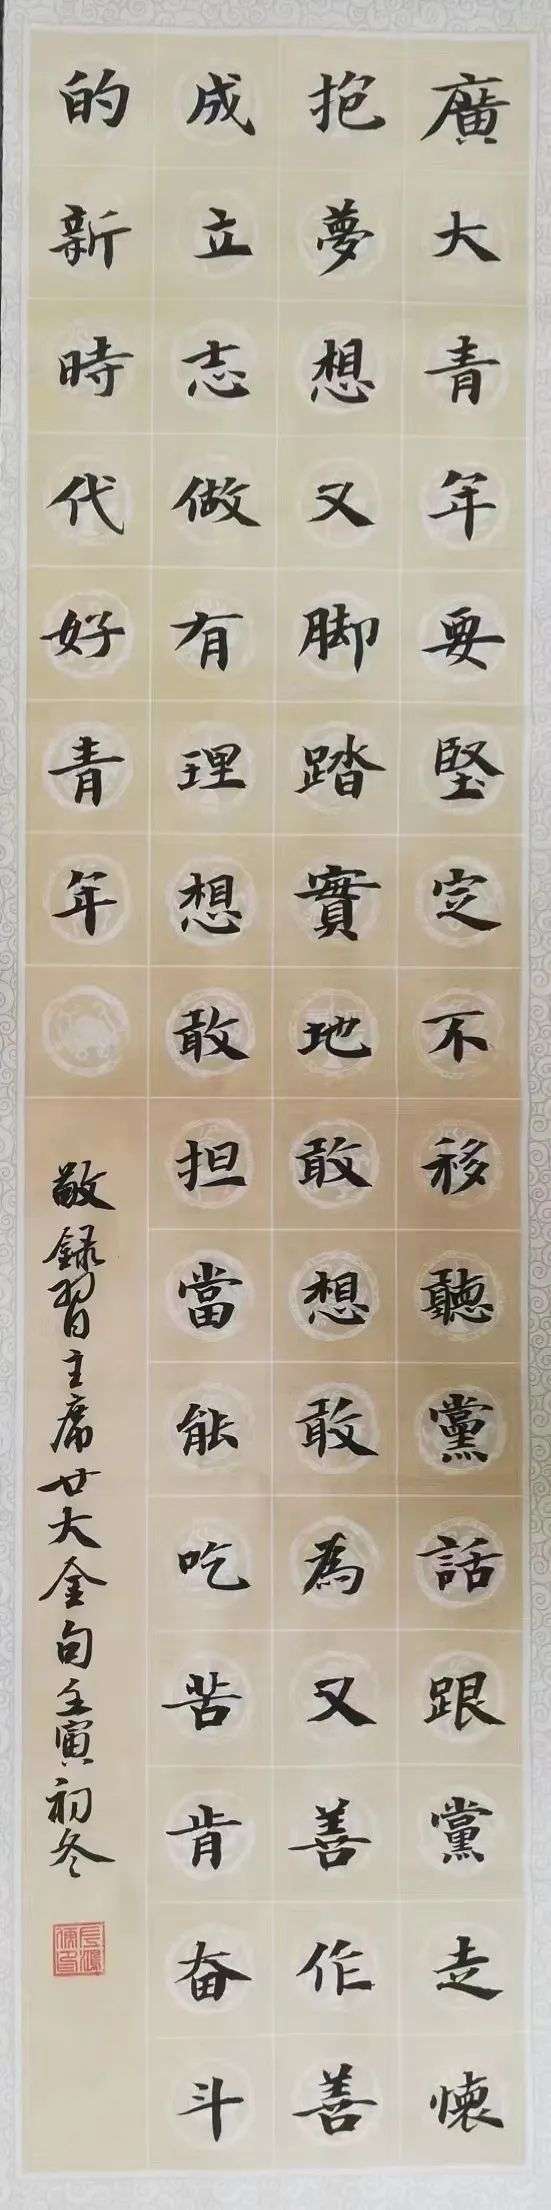 廣大青年要堅定不移聽黨話跟黨走懷
抱夢想又脚踏實地敢想敢為又善作善
成立志做有理想敢担當能吃苦肯奋斗
的新時代好青年
敬録習主席廿大金句壬寅初冬